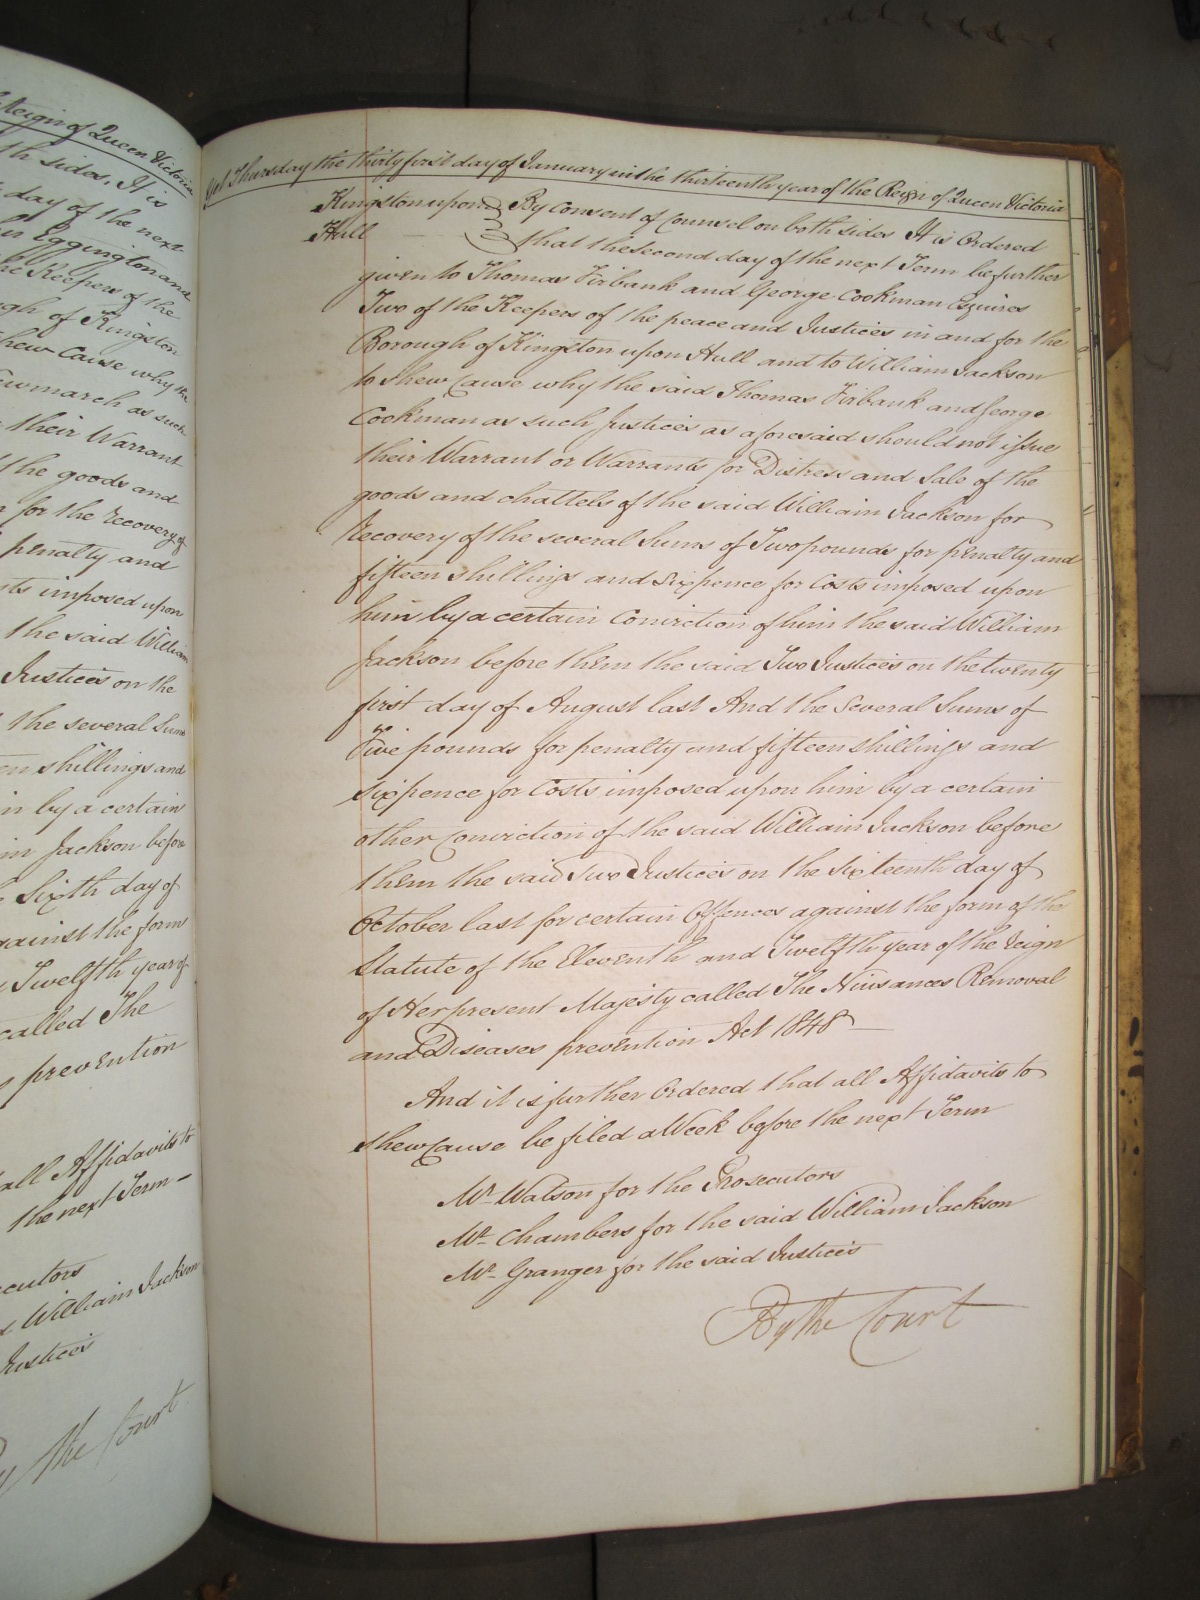 Reign of Queen Victoria
th sides. It is
day of the next
Eggington and
he Keepers of the
ugh of Kingston
hew Cause why the
ewmarch as such
their Warrant
the goods and
for the recovery of
penalty and
sts imposed upon
the said William
Justices on the
the several Sums
en shillings and
in by a certain
m Jackson before
Sixth day of
gainst the form
Twelfth year of
called The
prevention
all Affidavits to
the next Term —
cutors
William Jackson
Justices
By the Court
Yet Thursday the thirty first day of January in the thirteenth year of the Reign of Queen Victoria
Kingston upon } By Consent of Counsel on both sides It is Ordered
Hull — } that the second day of the next Term be further
given to Thomas Firbank and George Cookman Esquires
Two of the Keepers of the peace and Justices in and for the
Borough of Kingston upon Hull and to William Jackson
to shew Cause why the said Thomas Firbank and George
Cookman as such Justices as aforesaid should not issue
their Warrant or Warrants for Distress and Sale of the
goods and chattels of the said William Jackson for
Recovery of the several Sums of Two pounds for penalty and
fifteen shillings and sixpence for Costs imposed upon
him by a certain Conviction of him the said William
Jackson before them the said Two Justices on the twenty
first day of August last And the Several Sums of
Five pounds for penalty and fifteen shillings and
sixpence for Costs imposed upon him by a certain
other Conviction of the said William Jackson before
them the said Two Justices on the sixteenth day of
October last for certain Offences against the form of the
Statute of the Eleventh and Twelfth year of the reign
of Her present Majesty called The Nuisances Removal
and Diseases prevention Act 1848 —
And it is further Ordered that all Affidavits to
shew Cause be filed a Week before the next Term
Mr. Watson for the Prosecutors
Mr. Chambers for the said William Jackson
Mr. Granger for the said Justices
By the Court